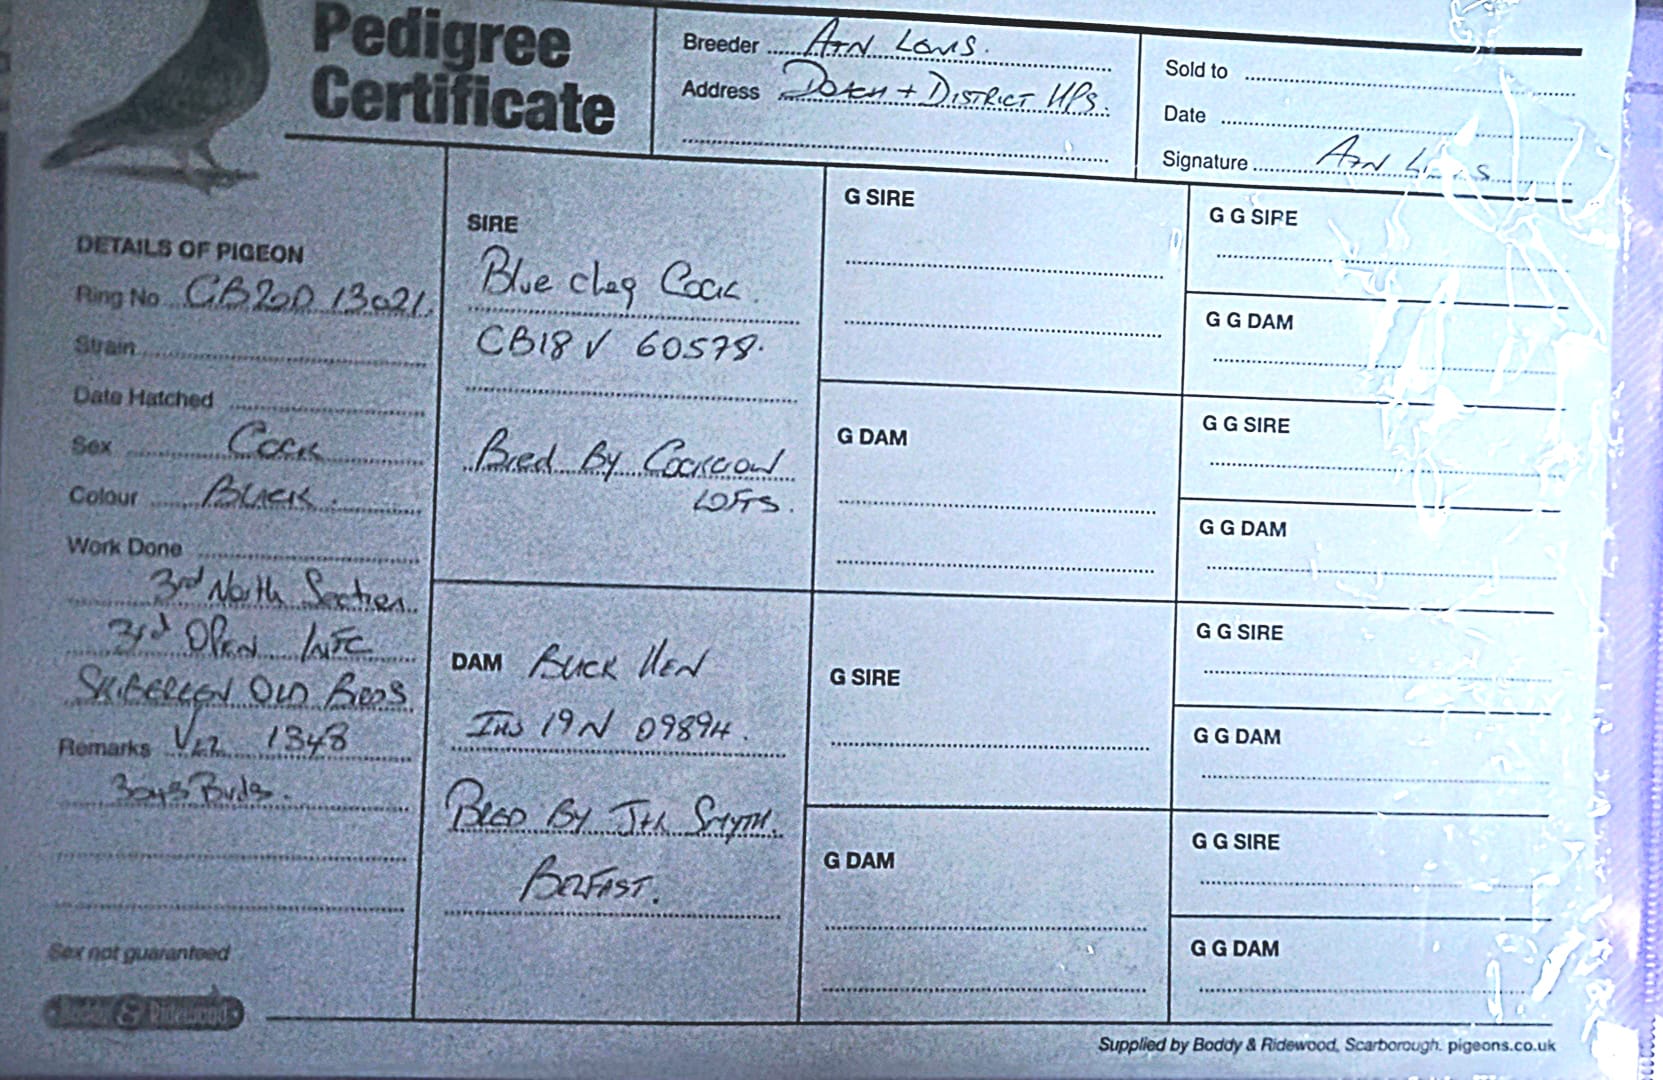 Pedigree
Certificate
Breeder
Address + DISTRICT HPS.
Sold to
Date
Signature
DETAILS OF PIGEON
Ring No GB20D 13021.
Strain
Date Hatched
Sex Cock
Colour BLACK.
Work Done
3rd North Section
3rd OPEN INFC
OLD
Remarks VEL 1348
3045 Birds.
Sex not guaranteed
Boddy & Ridewood
SIRE
Blue cheq Cock.
GB18 V 60578.
Bred By
LOFTS.
DAM BLACK HEN
IHU 19N 09894.
BRED BY SMYTH.
BELFAST.
G SIRE
G DAM
G SIRE
G DAM
G G SIRE
G G DAM
G G SIRE
G G DAM
G G SIRE
G G DAM
G G SIRE
G G DAM
Supplied by Boddy & Ridewood, Scarborough. pigeons.co.uk